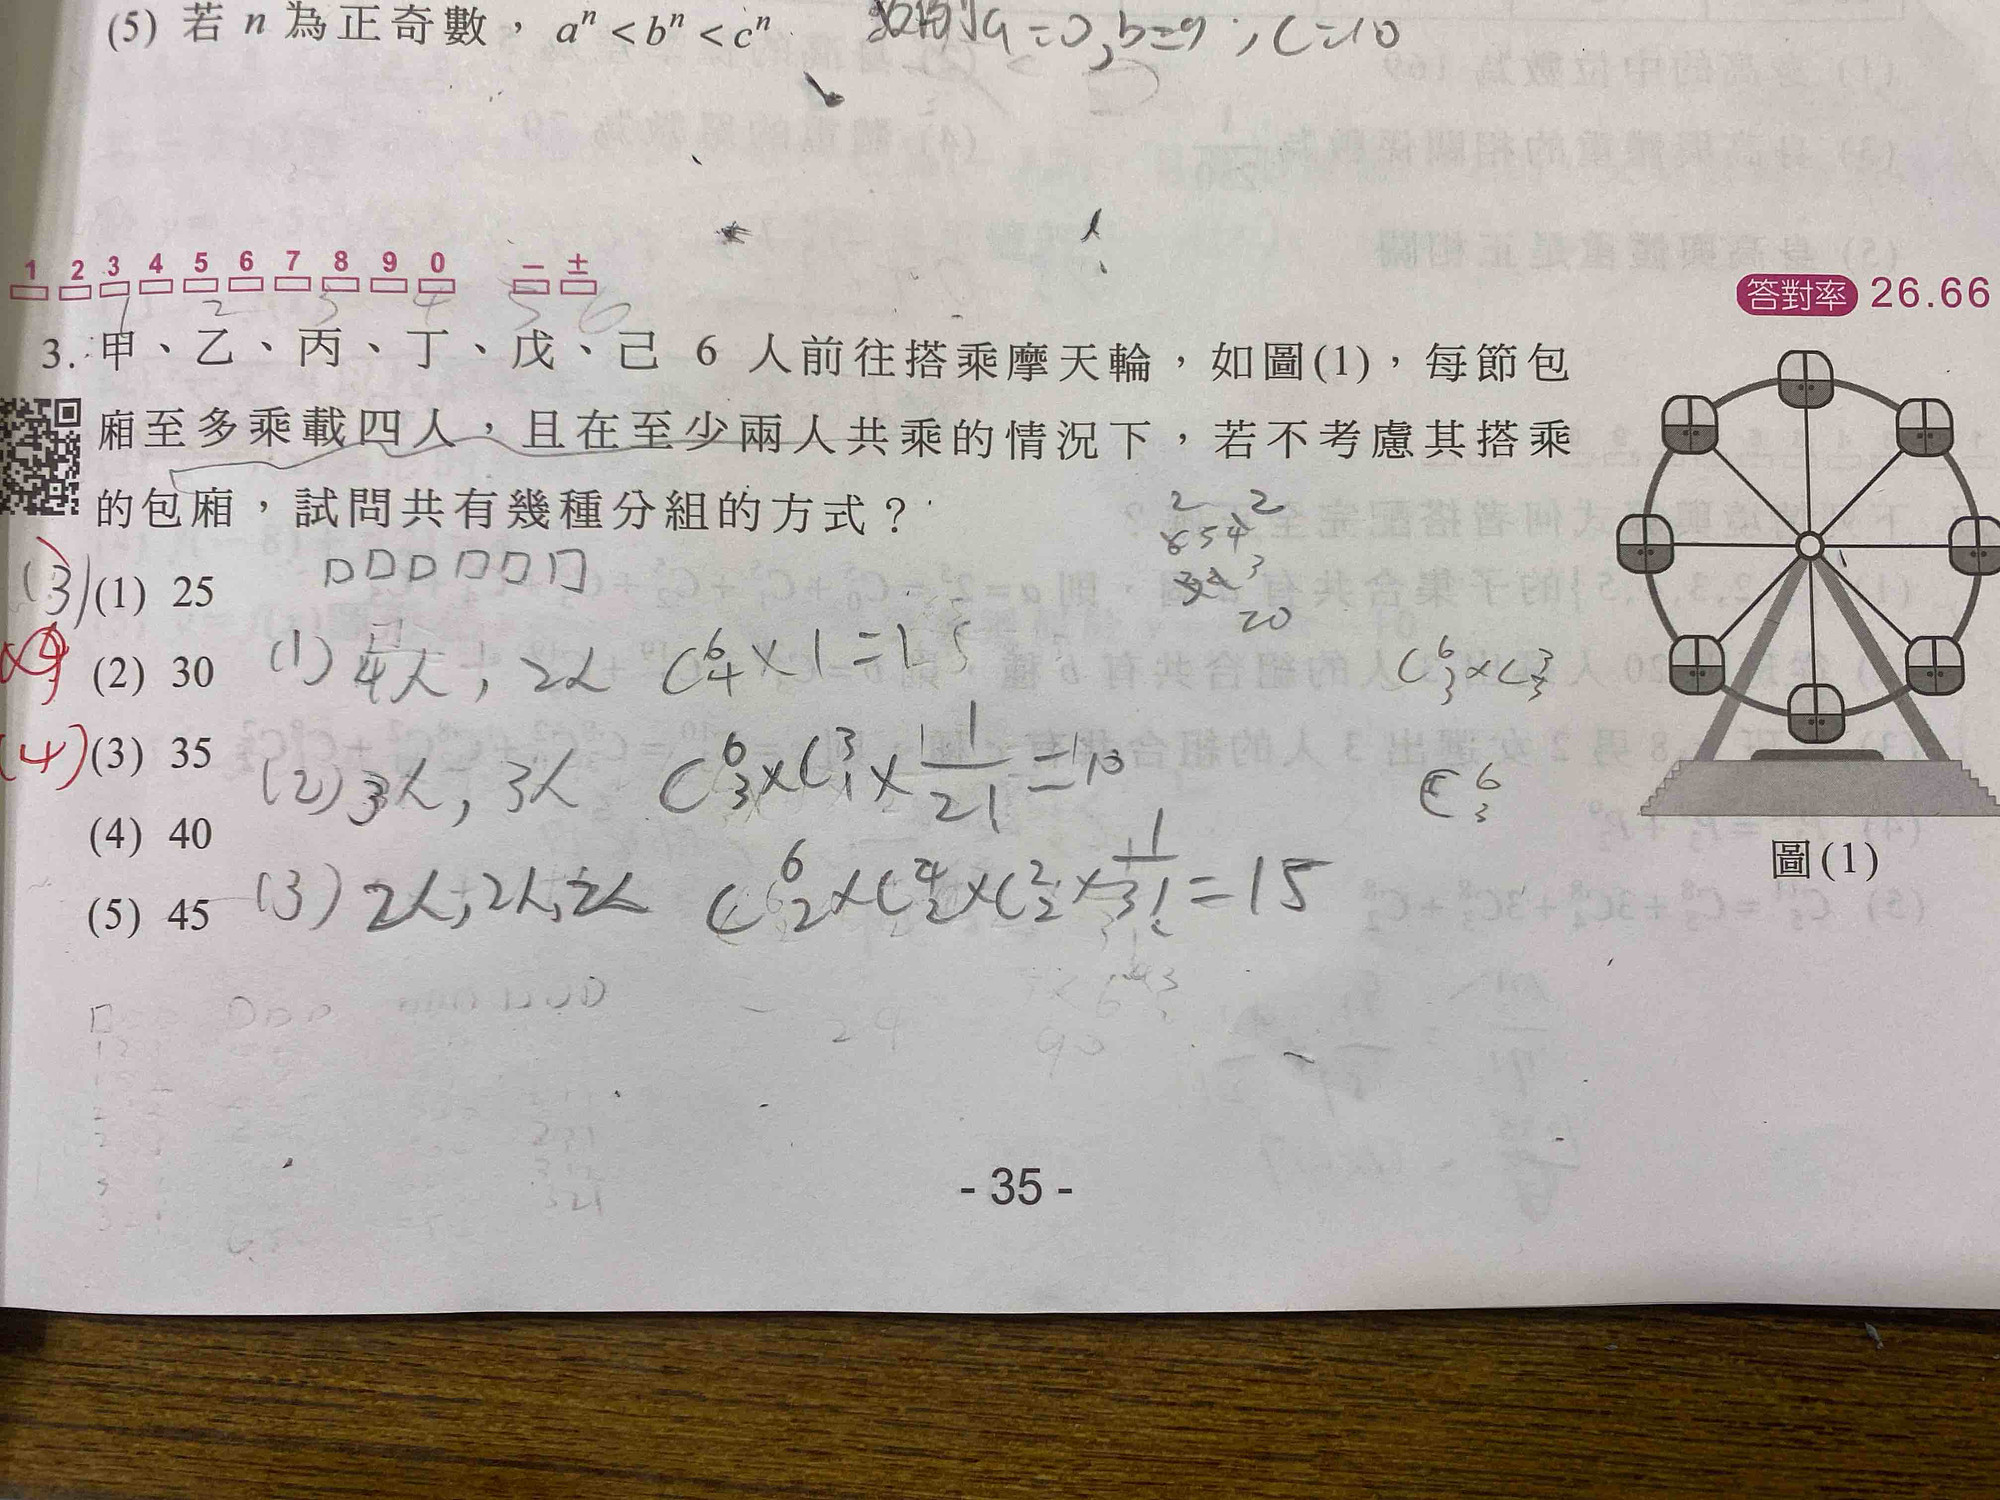 (5) 若 n 為正奇數，aⁿ < bⁿ < cⁿ
1 2 3 4 5 6 7 8 9 0 − ±
答對率 26.66
1 2 3 4 5 6
3. 甲、乙、丙、丁、戊、己 6 人前往搭乘摩天輪，如圖(1)，每節包
廂至多乘載四人，且在至少兩人共乘的情況下，若不考慮其搭乘
的包廂，試問共有幾種分組的方式？
(3)
(1) 25
(2) 30
(4)
(3) 35
(4) 40
(5) 45
(1) 4人, 2人 C⁶₄×1=15
(2) 3人, 3人
(3) 2人, 2人, 2人 C⁶₂×C⁴₂×C²₂×1/3!=15
20
C⁶₃×C³₃
C⁶₃
圖(1)
- 35 -